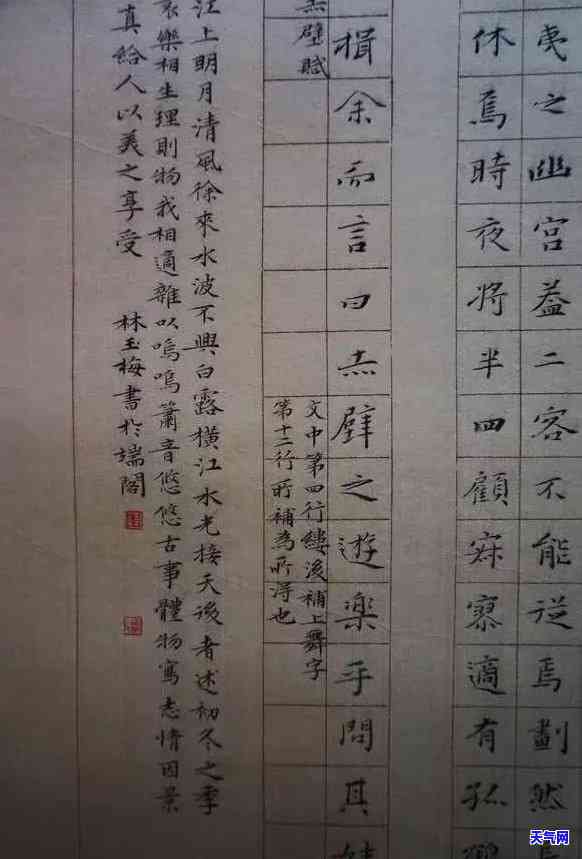 夷之幽宮蓋二客不能従焉劃然
休焉時夜將半四顧寂寥適有孤
揖余而言曰赤壁之遊樂乎問其
赤壁賦
文中第四行縷後補上舞字
第十二行所補為所得也
江上明月清風徐來水波不興白露橫江水光接天後者述初冬之季
哀樂相生理則物我相適雜以嗚嗚簫音悠悠古事體物寫志情因景
真給人以美之享受 林玉梅書於端閣
天气网